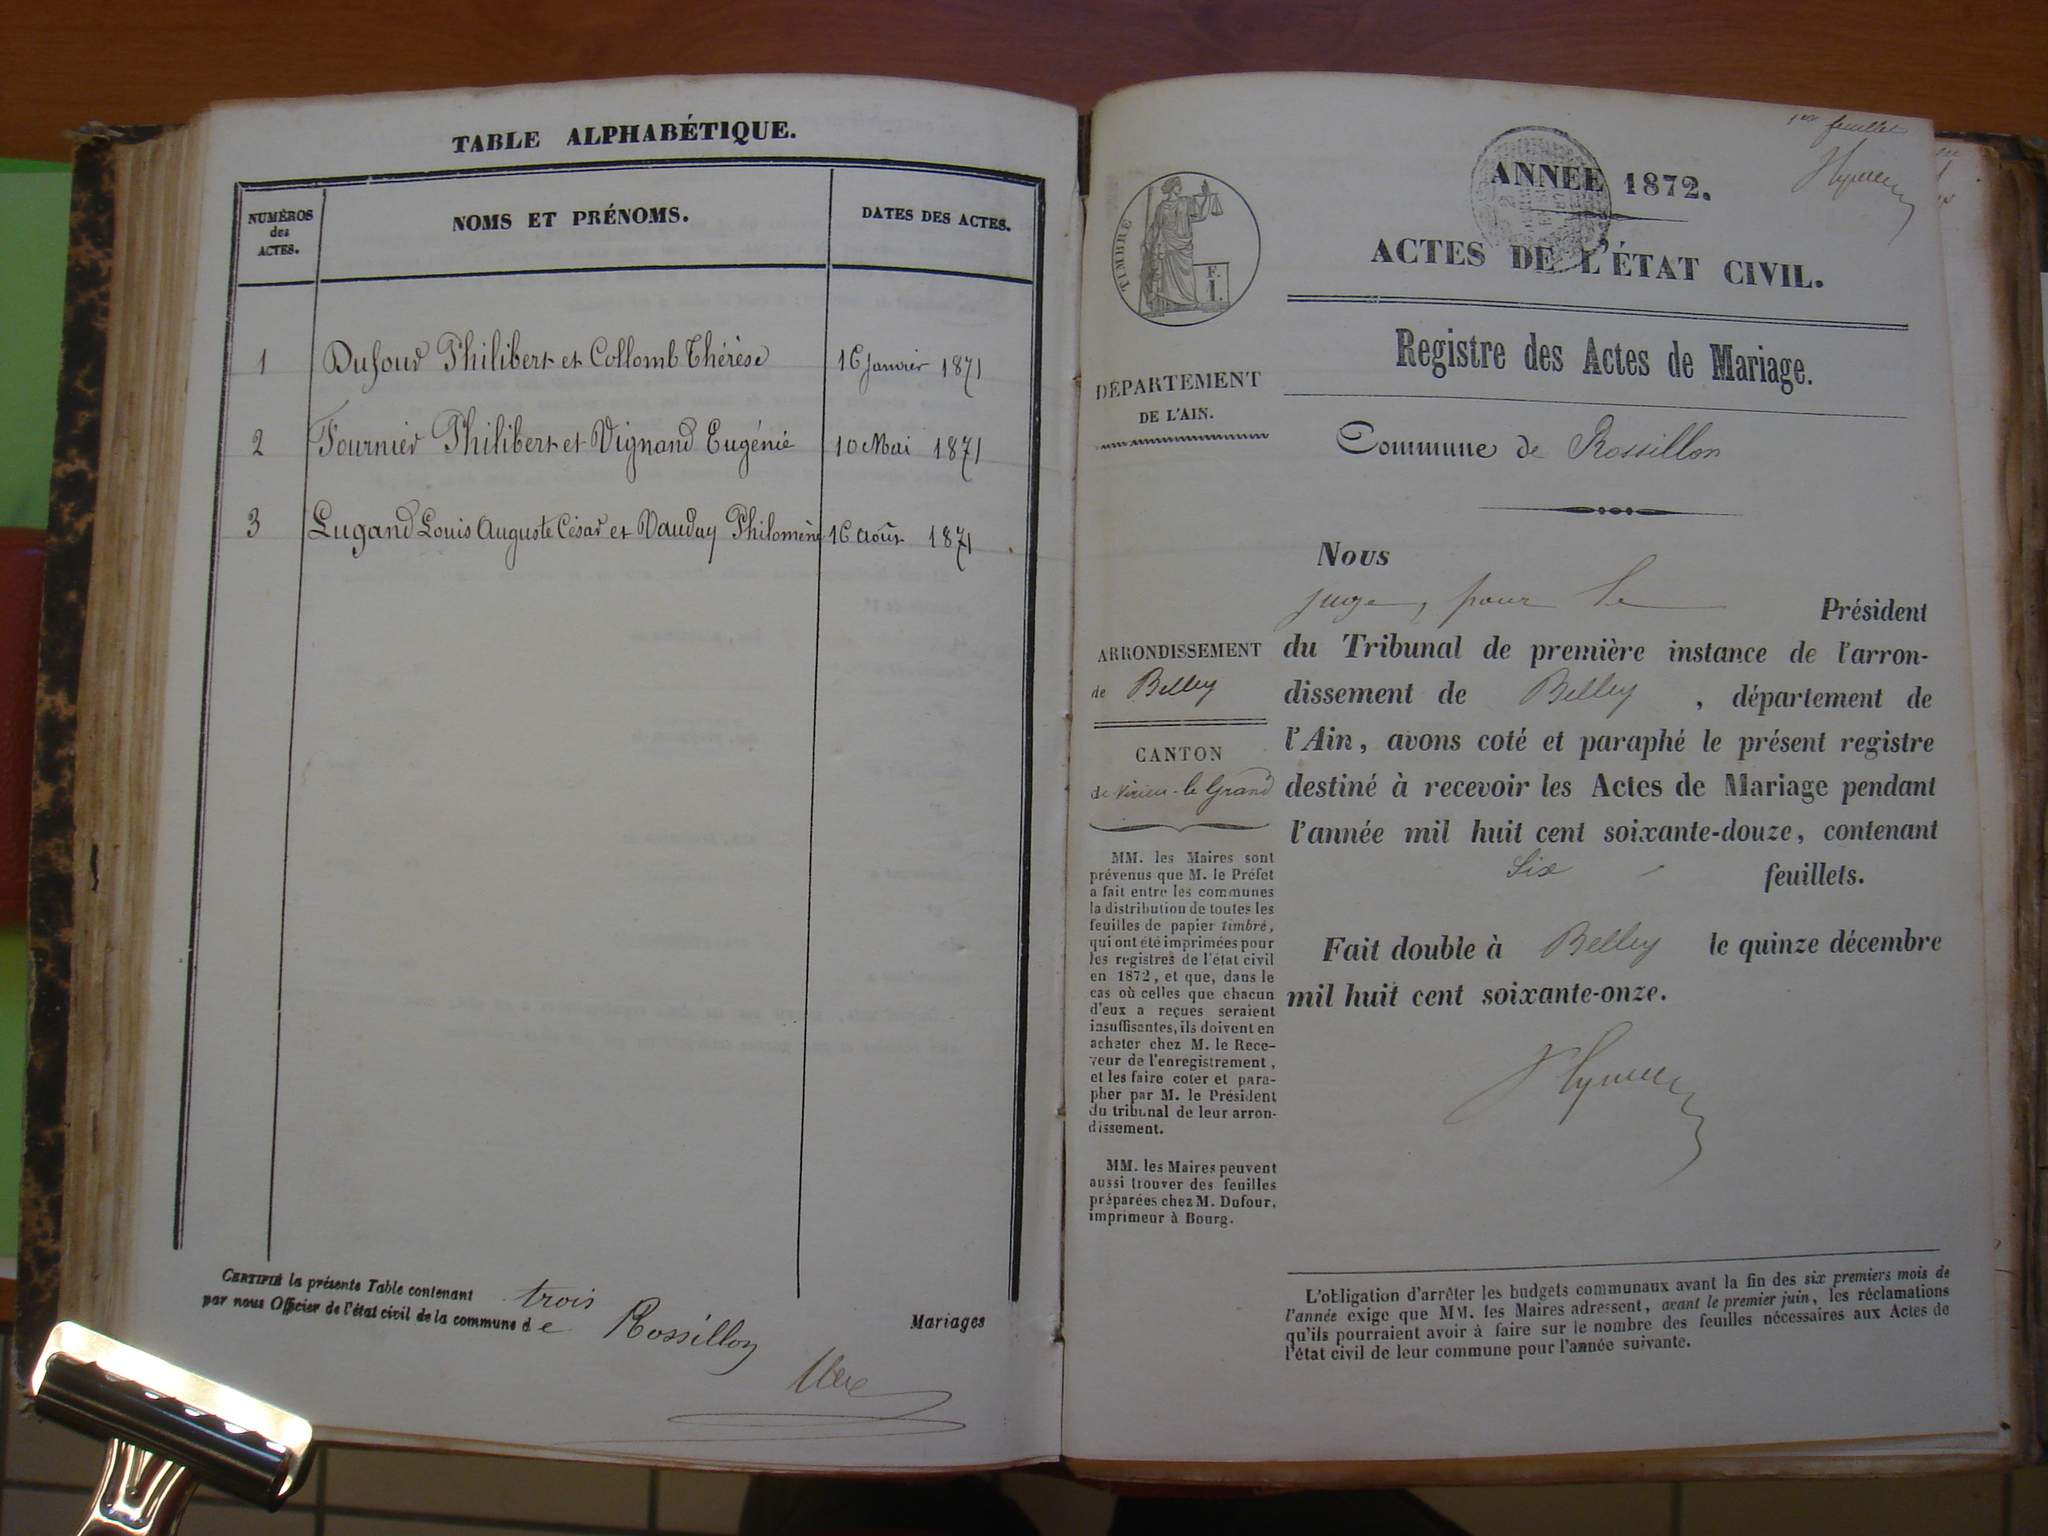 TABLE ALPHABÉTIQUE.
NUMÉROS
des
ACTES.
NOMS ET PRÉNOMS.
DATES DES ACTES.
1 Dufour Philibert et Collomb Thérèse 16 Janvier 1871
2 Fournier Philibert et Vignand Eugénie 10 Mai 1871
3 Lugand Louis Auguste César et Vauday Philomène 16 Août 1871
CERTIFIÉ la présente Table contenant trois Mariages
par nous Officier de l'état civil de la commune de Rossillon
1er feuillet
ANNÉE 1872.
ACTES DE L'ÉTAT CIVIL.
TIMBRE
F.
1.
Registre des Actes de Mariage.
DÉPARTEMENT
DE L'AIN.
Commune de Rossillon
Nous
juge, pour le Président
du Tribunal de première instance de l'arron-
dissement de Belley, département de
l'Ain, avons coté et paraphé le présent registre
destiné à recevoir les Actes de Mariage pendant
l'année mil huit cent soixante-douze, contenant
Six feuillets.
Fait double à Belley le quinze décembre
mil huit cent soixante-onze.
ARRONDISSEMENT
de Belley
CANTON
de Virieu-le Grand
MM. les Maires sont
prévenus que M. le Préfet
a fait entre les communes
la distribution de toutes les
feuilles de papier timbré,
qui ont été imprimées pour
les registres de l'état civil
en 1872, et que, dans le
cas où celles que chacun
d'eux a reçues seraient
insuffisantes, ils doivent en
acheter chez M. le Rece-
veur de l'enregistrement,
et les faire coter et para-
pher par M. le Président
du tribunal de leur arron-
dissement.
MM. les Maires peuvent
aussi trouver des feuilles
préparées chez M. Dufour,
imprimeur à Bourg.
L'obligation d'arrêter les budgets communaux avant la fin des six premiers mois de
l'année exige que MM. les Maires adressent, avant le premier juin, les réclamations
qu'ils pourraient avoir à faire sur le nombre des feuilles nécessaires aux Actes de
l'état civil de leur commune pour l'année suivante.